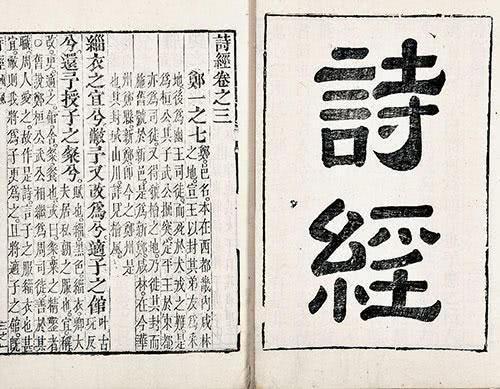 詩經
詩經卷之三
鄭一之七
鄭。邑名。本在西都畿內咸林
之地。宣王以封其弟友爲采
地。後爲幽王司徒。而死於犬戎之難。是
爲桓公。其子武公掘突。定平王於東都。
亦爲司徒。又得虢檜之地。乃徙其封。而
施舊號於新邑。是爲新鄭。咸林在今華
州鄭縣。新鄭即今之鄭州是
也。其封域山川。詳見檜風。
緇衣之宜兮。敝予又改爲兮。適子之館
叶古
玩反
兮還予授子之粲兮。
賦也。緇黑色。緇衣卿大
夫居私朝之服也。宜稱
改。更。適。之。館。舍。粲。餐也。或曰。粲粟之精鑿者
○舊說。鄭桓公武公相繼爲周司徒。善於其
職。周人愛之。故作是詩。言子之服緇衣也甚
宜。敝則我將爲子更爲之。且將適子之館。旣